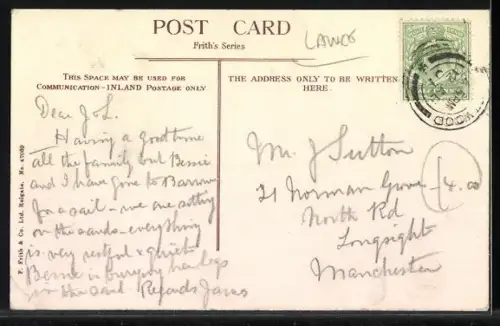 POST CARD
Frith's Series
LANCS
THIS SPACE MAY BE USED FOR
COMMUNICATION - INLAND POSTAGE ONLY
THE ADDRESS ONLY TO BE WRITTEN
HERE.
Dear J & L.
Having a good time
all the family but Bessie
and I have gone to Barrow
for a sail - we are sitting
on the sands - everything
is very restful & quiet
Bessie is burying her legs
in the sand Regards James
Mr J Sutton
21 Norman Grove
North Rd
Longsight
Manchester
4.00
F. Frith & Co. Ltd. Reigate. No.
TWOOD